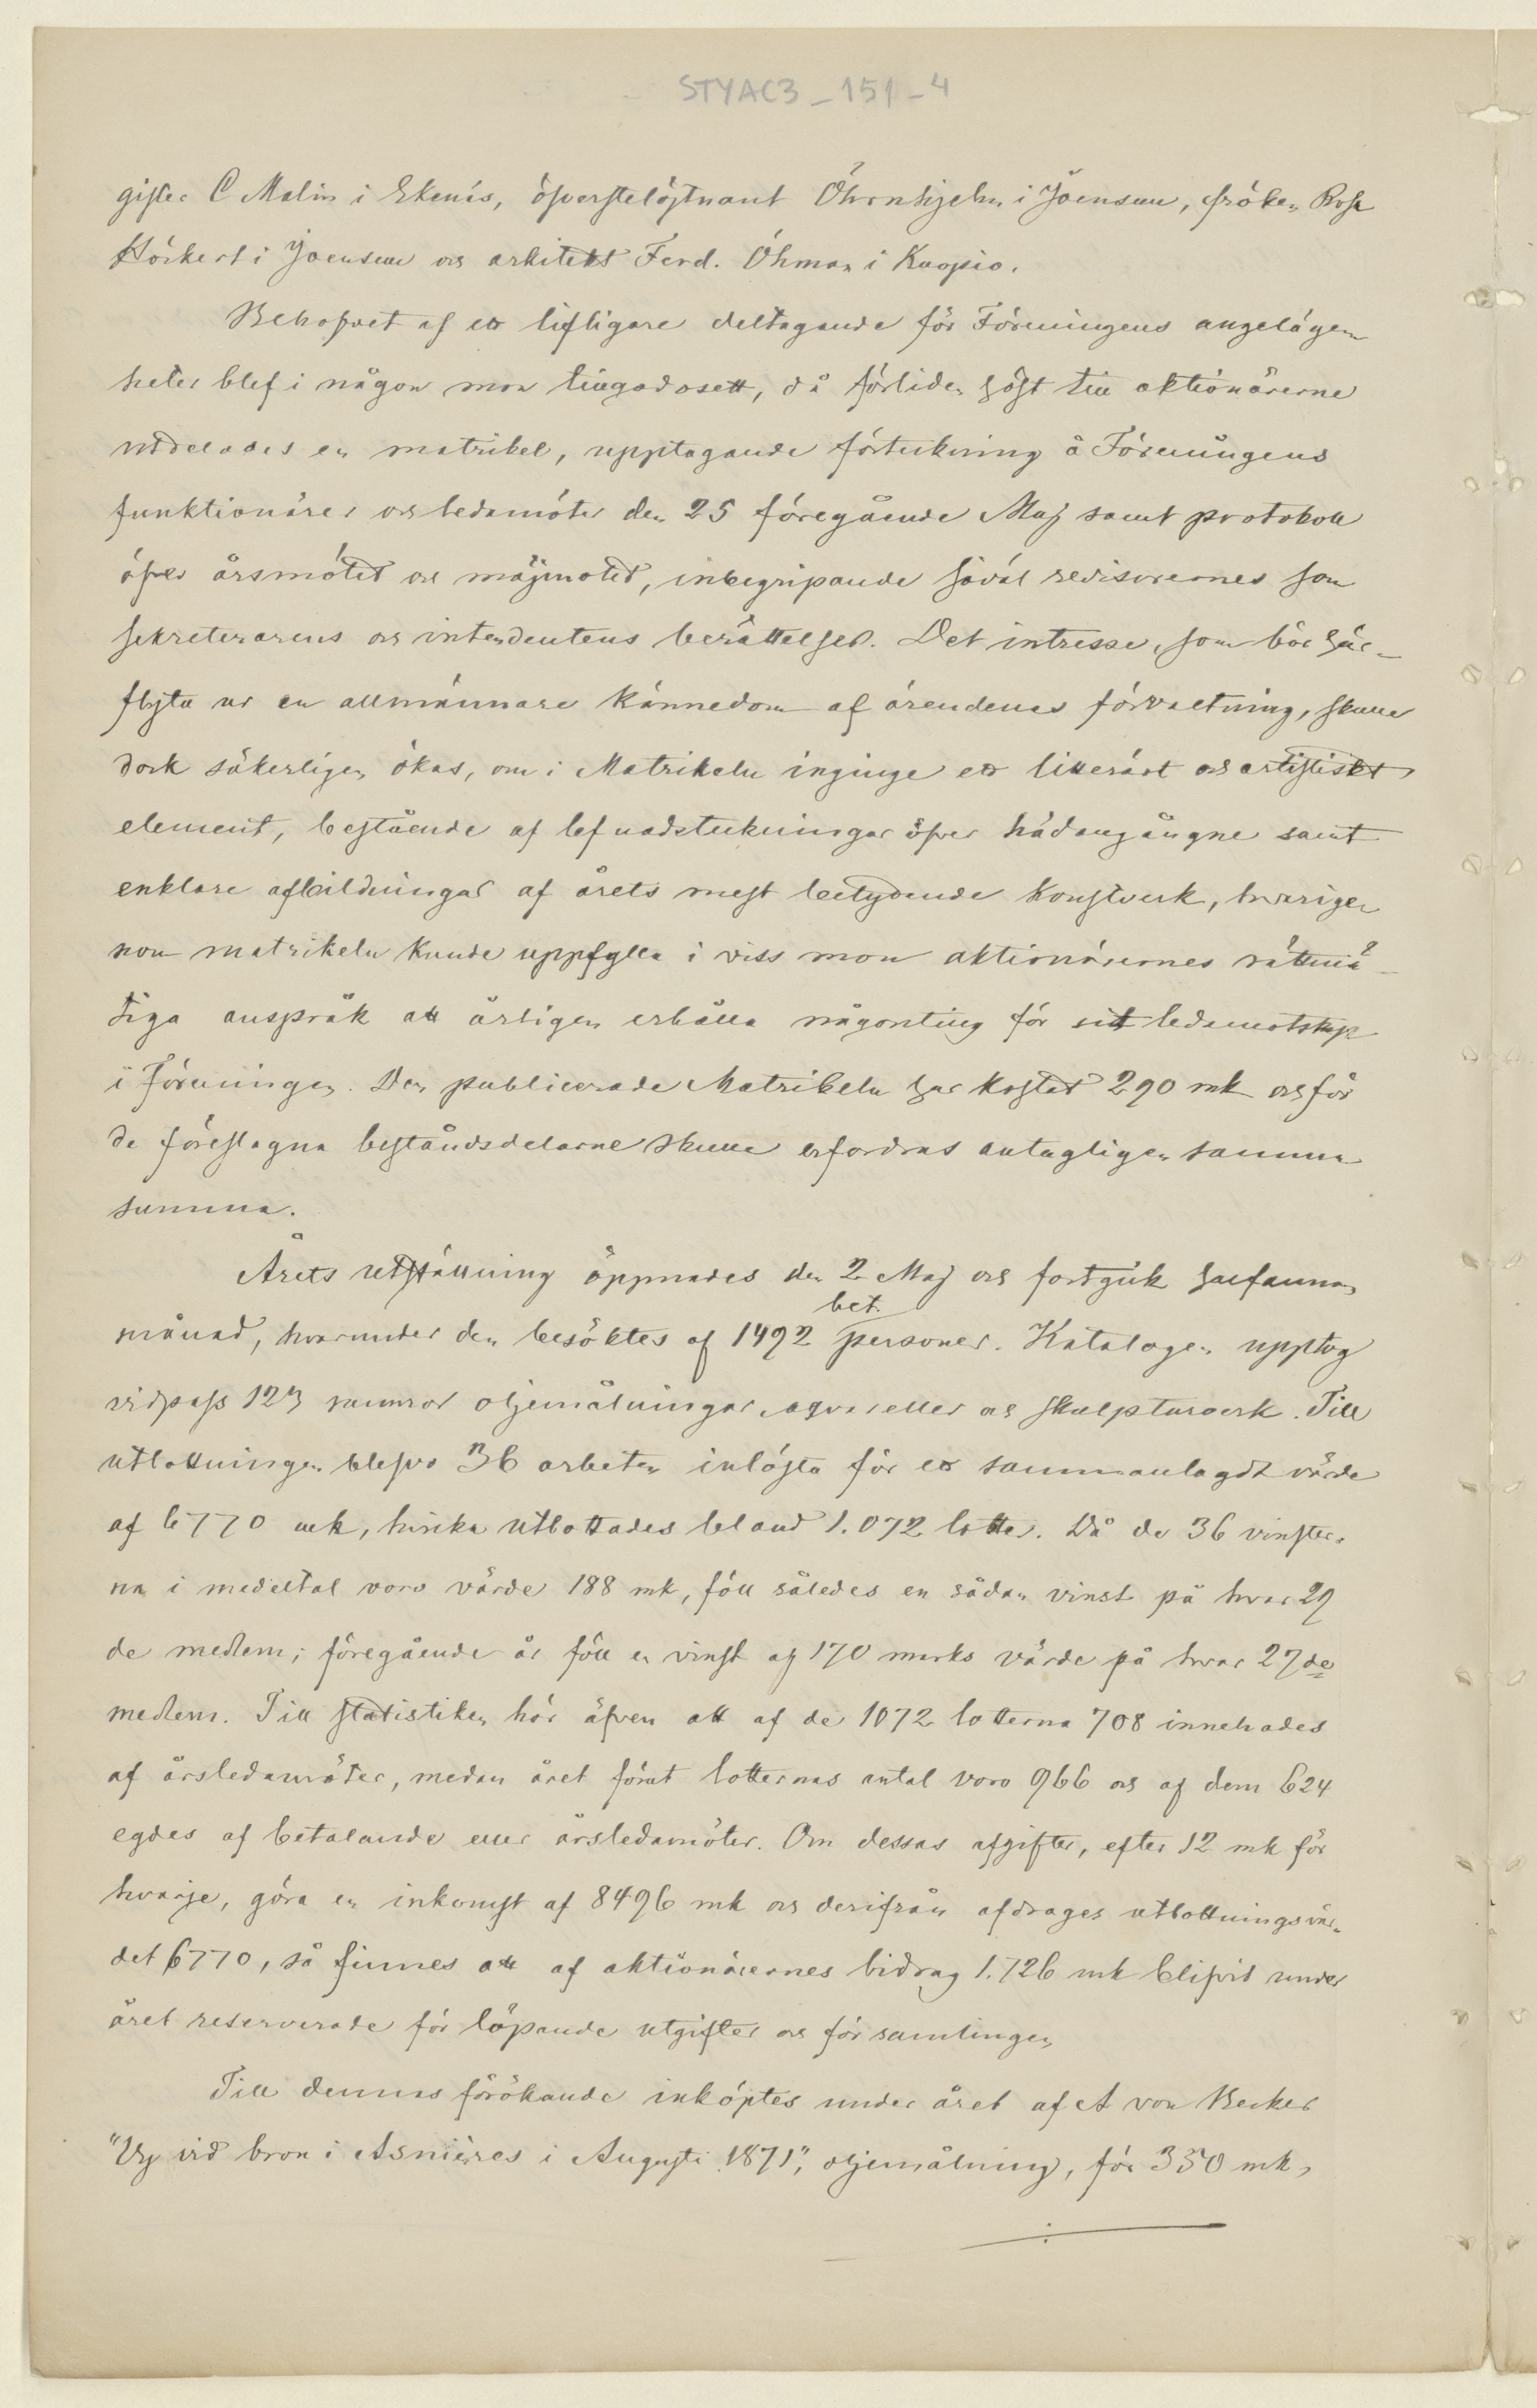 STYAC3_151_4
gister C Malin i Ekenäs, öfverstelöjtnant Öhrnhjelm i Joensuu, fröken Rosa
Hörkert i Joensuu och arkitekt Ferd. Öhman i Kuopio.
Behofvet af ett lifligare deltagande för Föreningens angelägen
heter blef i någon mon tillgodosett, då förliden höst till aktionärerne
utdelades en matrikel, upptagande förteckning å Föreningens
funktionärer och ledamöter den 25 föregående Maj samt protokoll
öfver årsmötet och majmötet, inbegripande såväl revisorernes som
sekreterarens och intendentens berättelser. Det intresse, som bör här-
flyta ur en allmännare kännedom af ärendenas förvaltning, skulle
dock säkerligen ökas, om i Matrikeln inginge ett litterärt och artistiskt
element, bestående af lefnadsteckningar öfver hädangångne samt
enklare afbildningar af årets mest betydande konstverk, hvarige
nom matrikeln kunde uppfylla i viss mon aktionärernes rättmä-
tiga anspråk att årligen erhålla någonting för sitt ledamotskap
i Föreningen. Den publicerade Matrikeln har kostat 290 mk och för
de föreslagna beståndsdelarne skulle erfordras antagligen samma
summa.
Årets utställning öppnades den 2 Maj och fortgick helfannan
månad, hvarunder den besöktes af 1492 bet. personer. Katalogen upptog
vidpass 123 numror oljemålningar, aqvareller och skulpturverk. Till
utlottningen blefvo 36 arbeten inlösta för ett sammanlagdt värde
af 6770 mk, hvilka utlottades bland 1.072 lotter. Då de 36 vinster-
na i medeltal voro värde 188 mk, föll således en sådan vinst på hvar 29
de medlem; föregående år föll en vinst af 170 marks värde på hvar 27de
medlem. Till statistiken hör äfven att af de 1072 lotterna 708 innehades
af årsledamöter, medan året förut lotternas antal voro 966 och af dem 624
egdes af betalande eller årsledamöter. Om dessas afgifter, efter 12 mk för
hvarje, göra en inkomst af 8496 mk och derifrån afdrages utlottningsvär-
det 6770, så finnes att af aktionärernes bidrag 1.726 mk blifvit under
året reserverade för löpande utgifter och för samlingen
Till dennas förökande inköptes under året af A von Becker
"Vy vid bron i Asnières i Augusti 1871", oljemålning, för 350 mk,